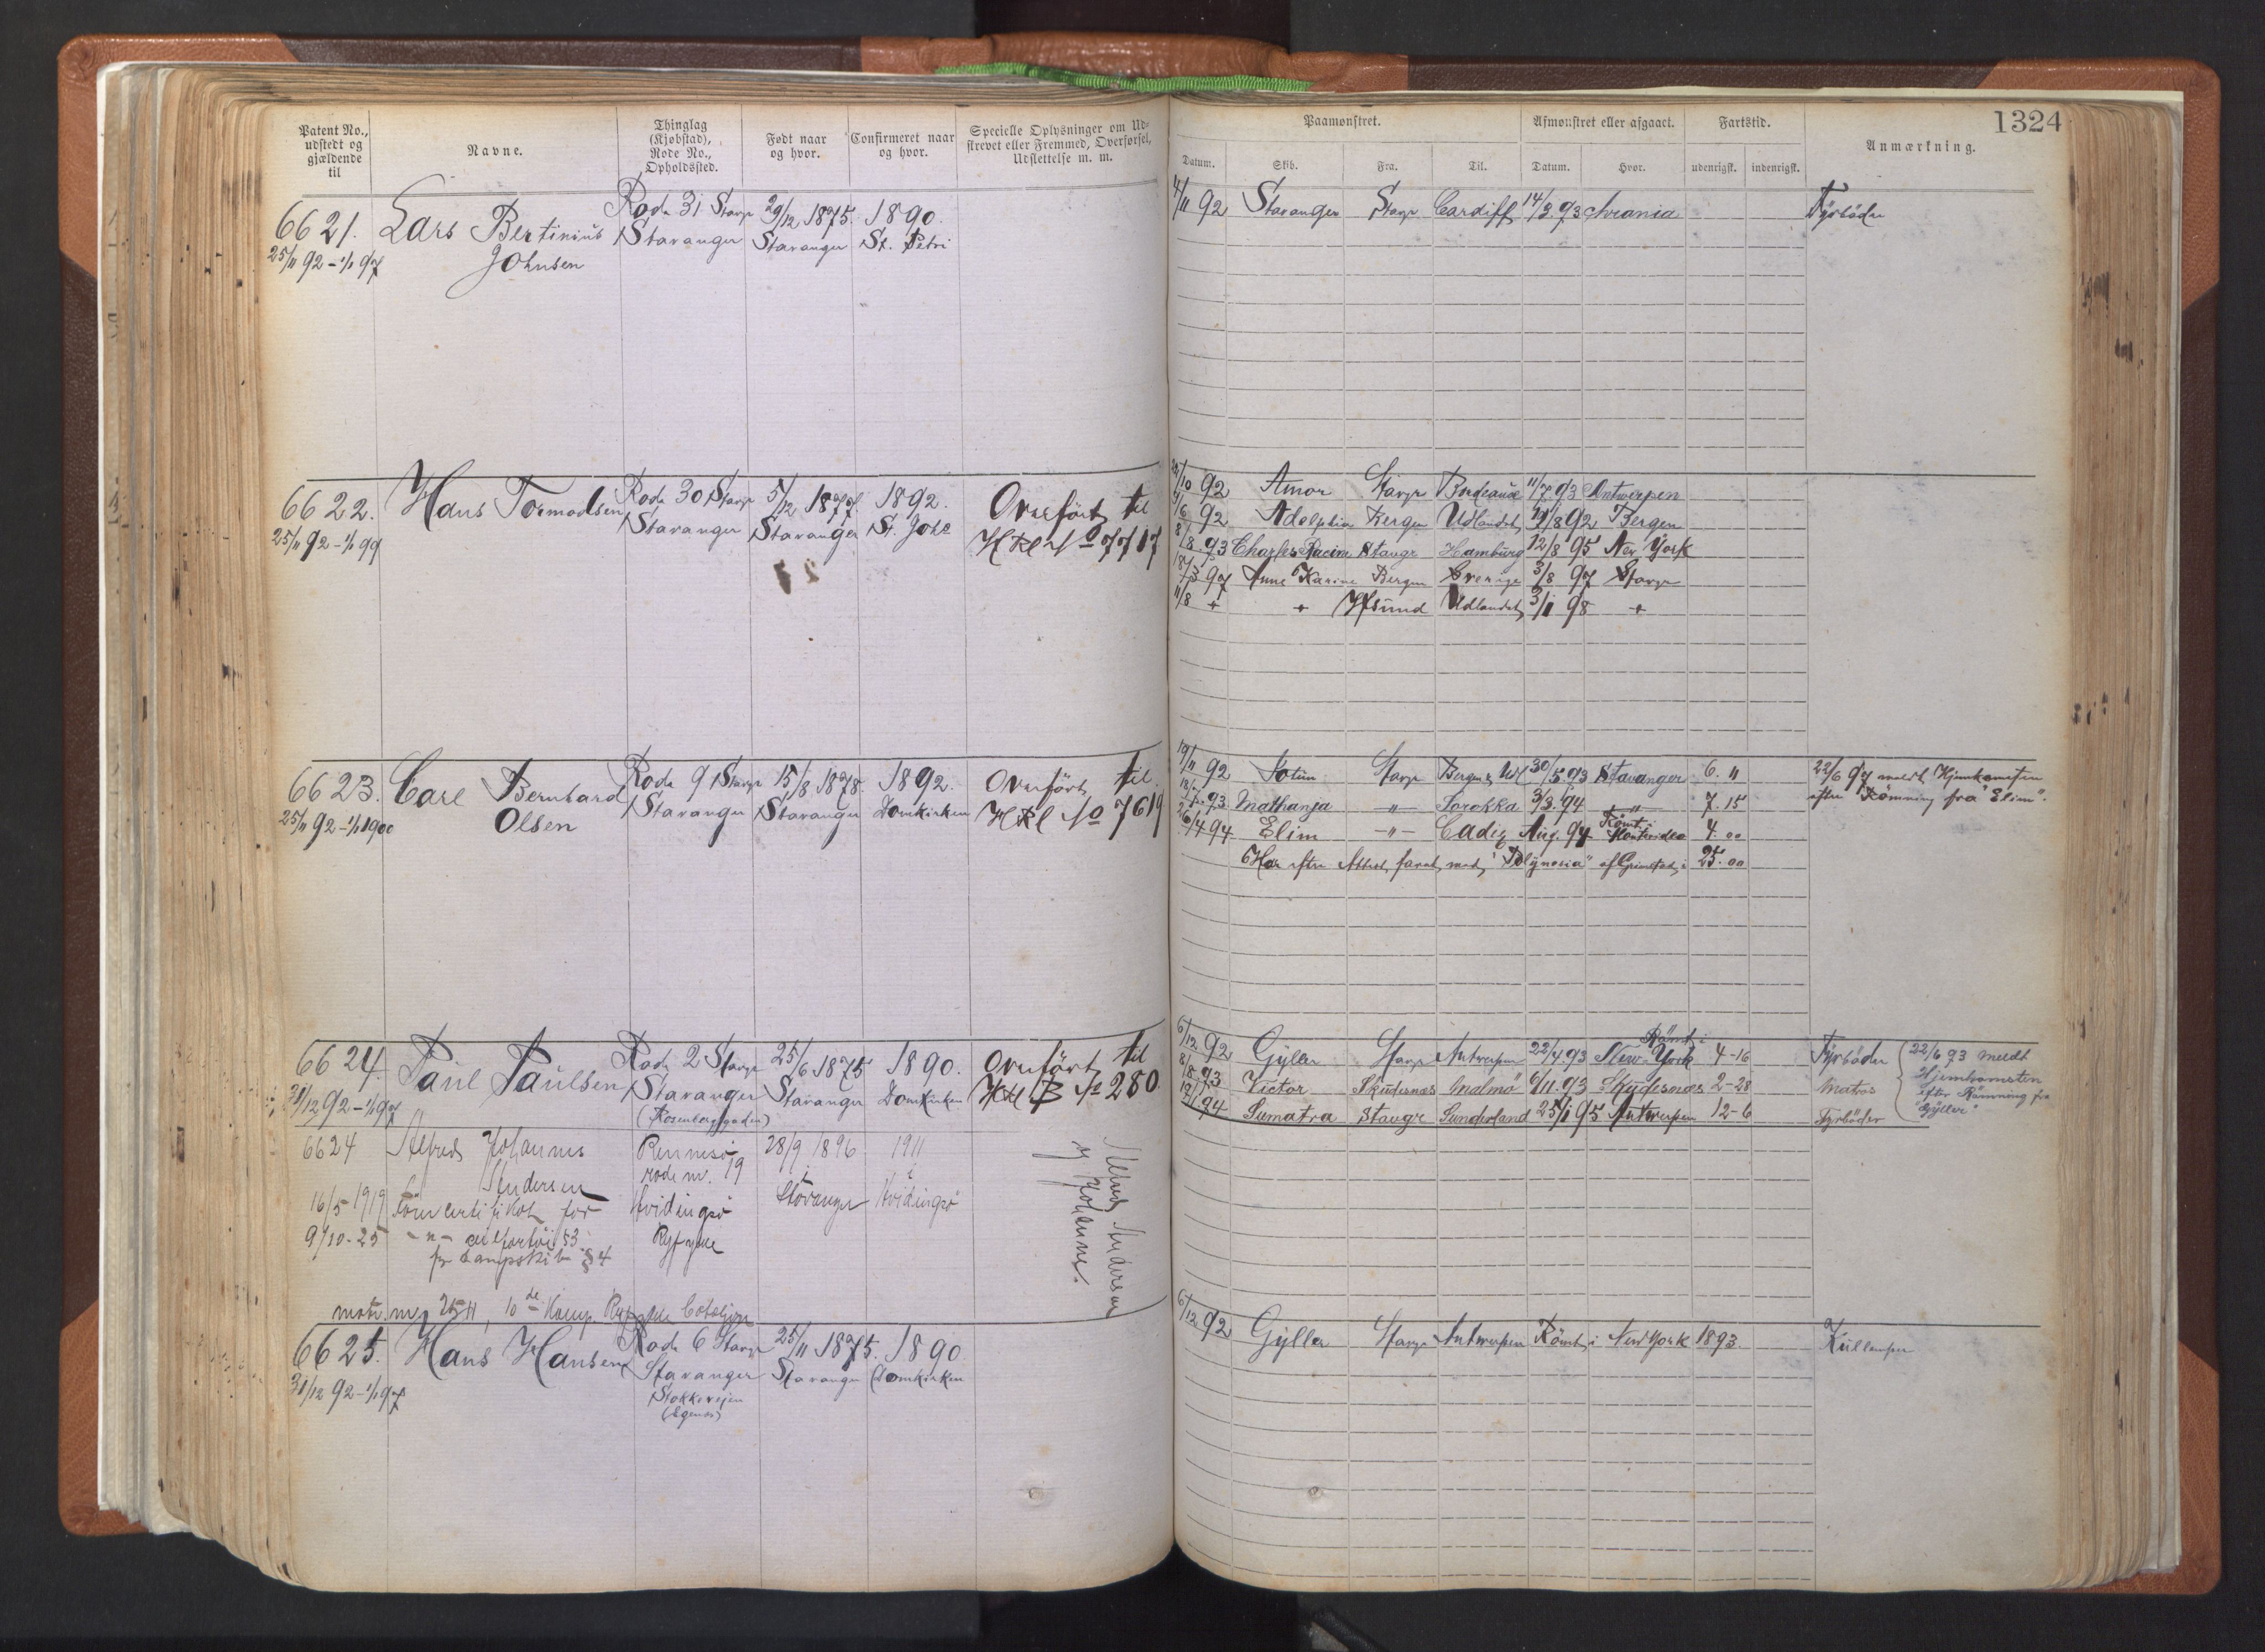 Patent No.,
udstedt og
gjældende
til
Navne.
Thinglag
(Kjøbstad),
Rode No.,
Opholdssted.
Født naar
og hvor.
Confirmeret naar
og hvor.
Specielle Oplysninger om Ud-
skrevet eller Fremmed, Overførsel,
Udslettelse m. m.
6621.
25/11 92 - 1/1 97
Lars Bertinius
Johnsen
Rode 31 Stavgr
Stavanger
29/12 1875.
Stavanger
1890.
St. Petri
6622.
25/11 92 - 1/1 99
Hans Tormodsen
Rode 30 Stavgr
Stavanger
5/12 1877.
Stavanger
1892.
St. Johs
Overført til
HRl No 7717
6623.
25/11 92 - 1/1 1900
Carl Bernhard
Olsen
Rode 9 Stavgr
Stavanger
15/8 1878.
Stavanger
1892.
Domkirken
Overført til
HRl No 7619
6624.
31/12 92 - 1/1 97
Paul Paulsen
Rode 2 Stavgr
Stavanger
(Rosenberggaden)
25/6 1875
Stavanger
1890.
Domkirken
Overført til
HRl B No 280
6624
16/5 1919
9/10-25
Alfred Johannes
Andersen
for
§3
for Dampskib §4
Rennesø
rode nr. 19
Hvidingsø
Ryfylke
28/9 1896
i
Stavanger
1911
i
Hvidingsø
Alfred Andersen
Johannes.
10de Komp. Ryfylke
6625.
31/12 92 - 1/1 97
Hans Hansen
Rode 6 Stavgr
Stavanger
Stokkeveien
(Egenes)
25/11 1875.
Stavanger
1890
Domkirken
1324
Paamønstret.
Afmønstret eller afgaaet.
Fartstid.
Anmærkning.
Datum.
Skib.
Fra.
Til.
Datum.
Hvor.
udenrigsk.
indenrigsk.
4/11 92 Stavanger Stavgr Cardiff 14/3 93 Chrania Fyrbøder
22/10 92 Amor Stavgr Bordeaux 11/7 93 Antwerpen
92 Adelphia Bergen Udlandet 92 Bergen
8/8 93 Charles Racine Stavgr Hamburg 12/8 95 New York
18/3 97 Anne Karine Bergen Sverige 3/8 97 Stavgr
11/8 + + Hsund Udlandet 3/1 98 +
19/11 92 Jotun Stavgr Bergen & Udl 30/5 93 Stavanger 6. 11
22/6 97 meldt Hjemkomsten
efter Rømning fra "Elim".
93 Mathanja -"- Sorokka 3/3 94 " 7. 15
26/4 94 Elim -"- Cadiz Aug. 94 Rømt i Montevideo 4. 00
Har efter Attest faret med "Polynesia" af Grimstad i 25. 00
6/12 92 Gyller Stavgr Antwerpen 22/4 93 Rømt i New-York 4-16 Fyrbøder
8/8 93 Victor Skudesnæs Malmø 6/11 93 Skudesnæs 2-28 Matros
94 Sumatra Stavgr Sunderland 25/1 95 Antwerpen 12-6 Fyrbøder
22/6 93 meldt
Hjemkomsten
efter Rømning fra
"Gyller"
6/12 92 Gyller Stavgr Antwerpen Rømt i New York 1893. Kullemper